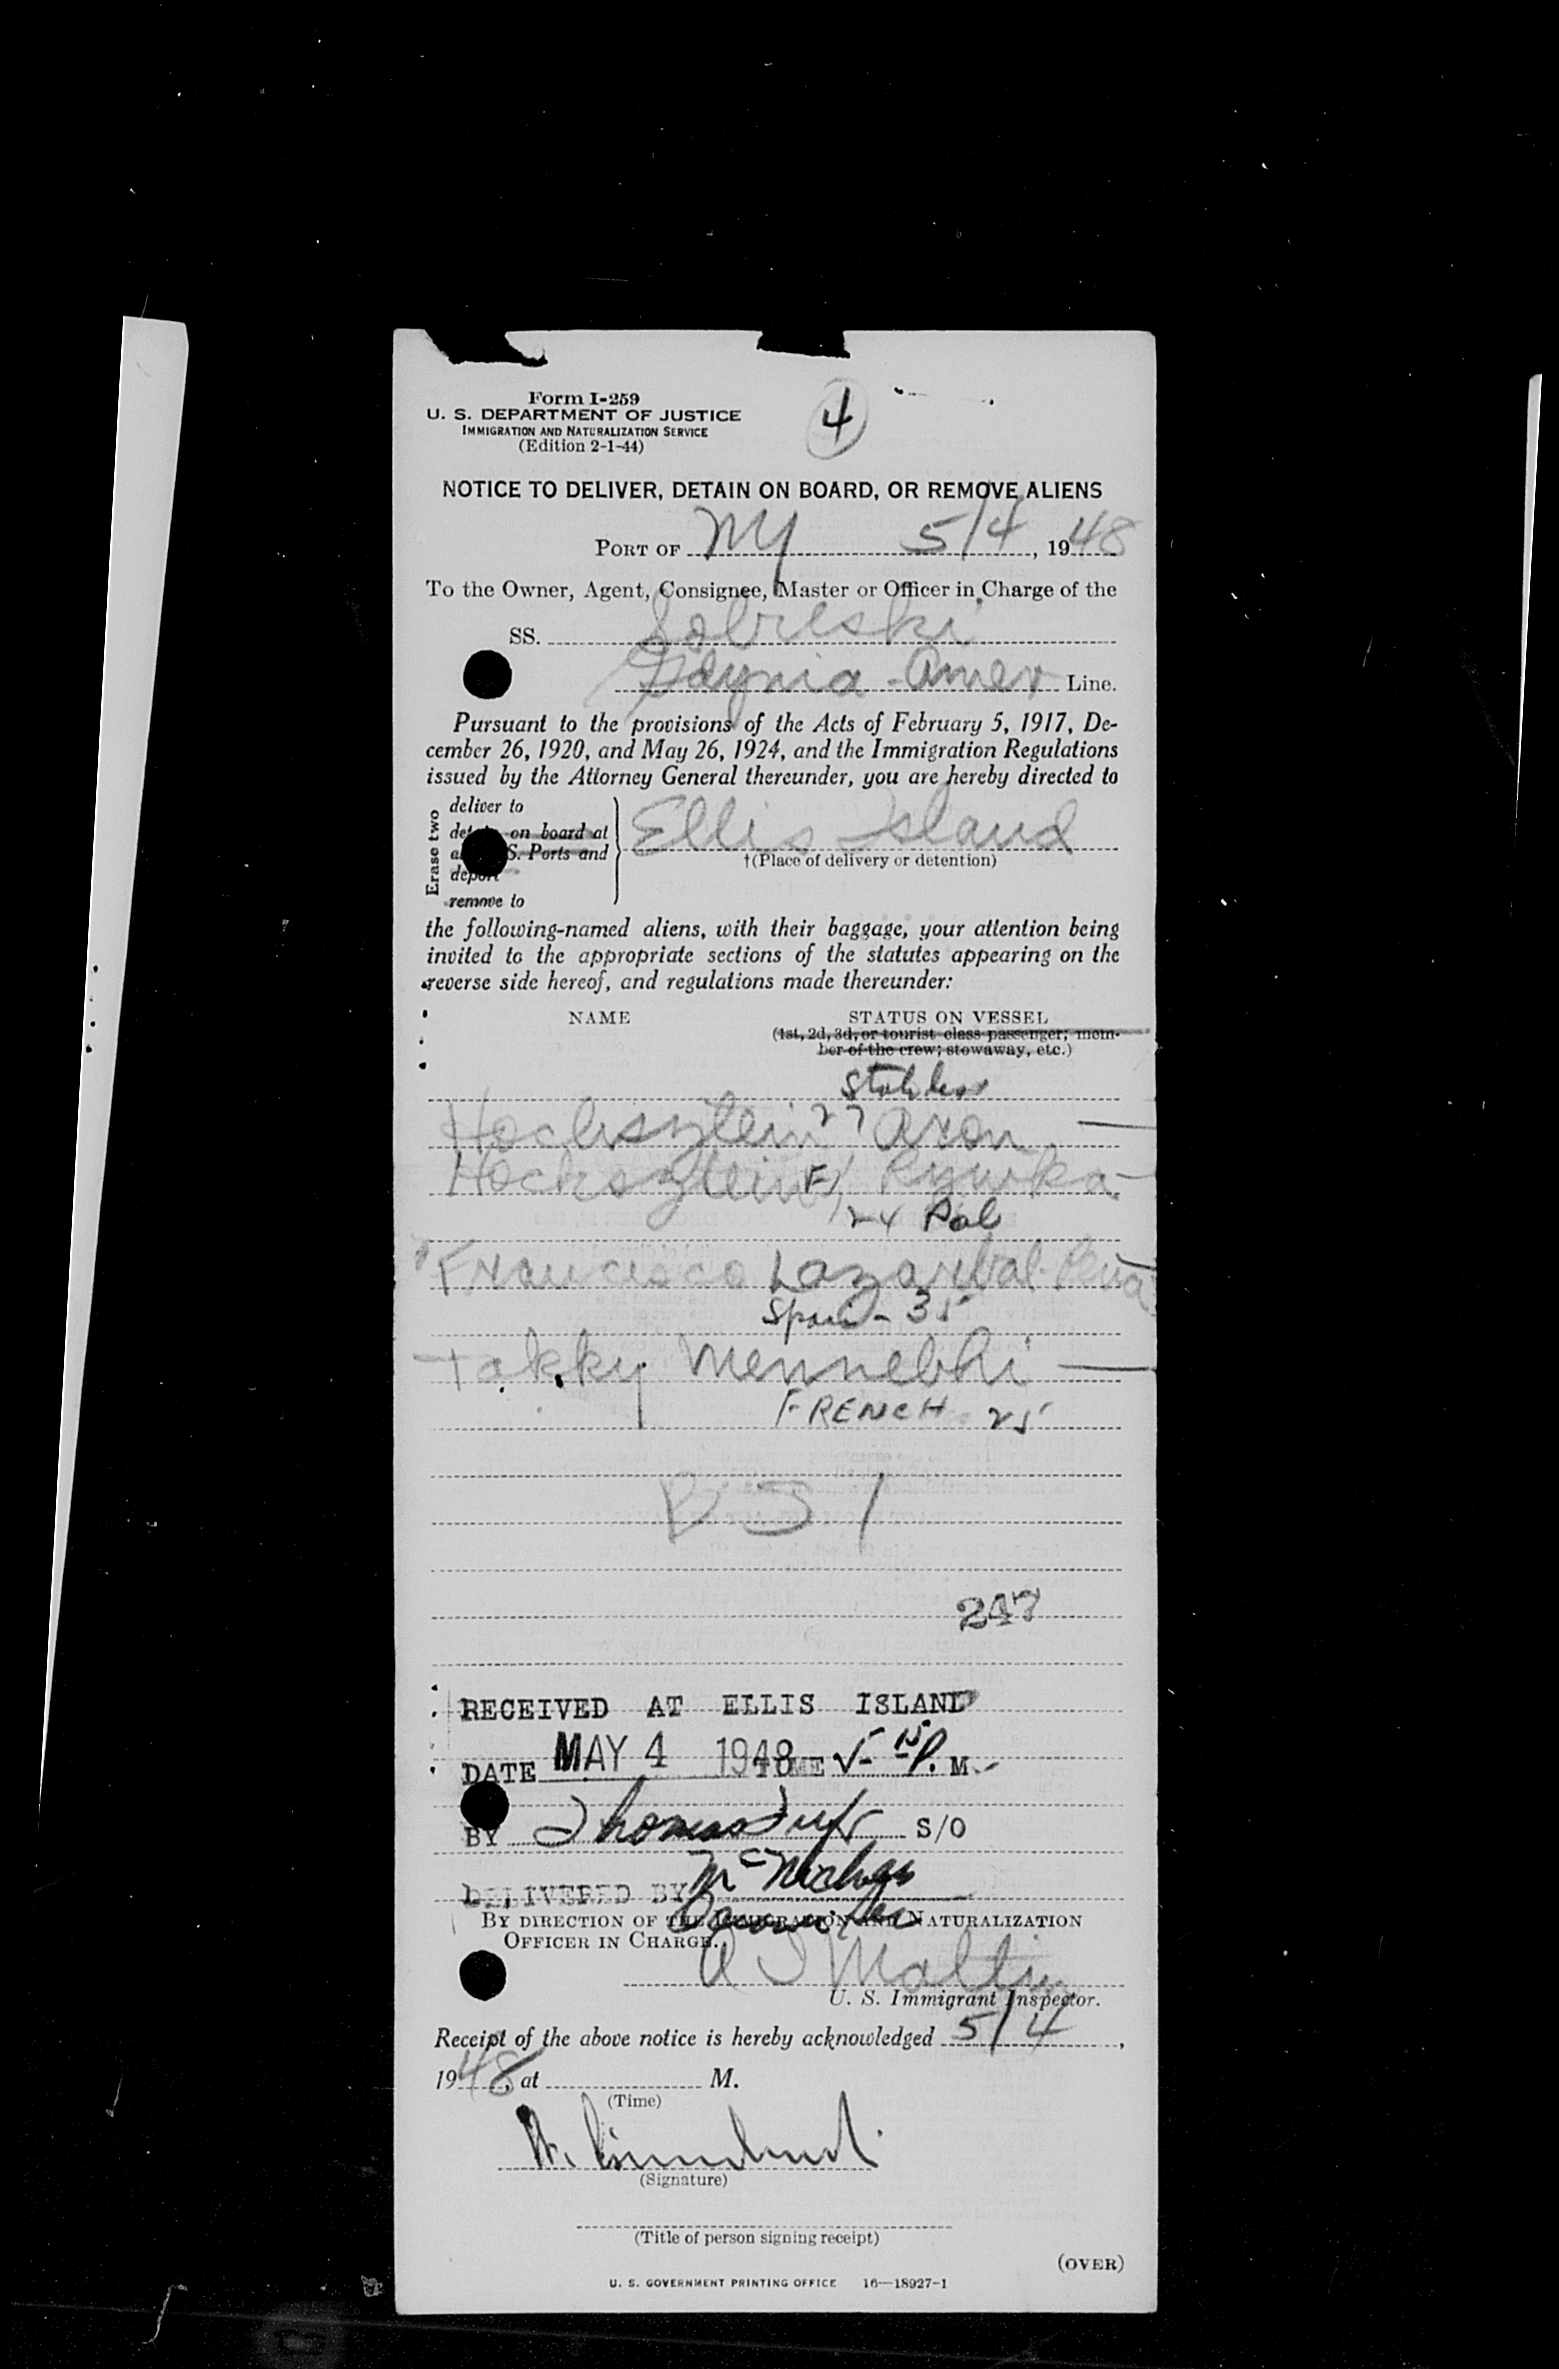 Form I-259
U. S. DEPARTMENT OF JUSTICE
IMMIGRATION AND NATURALIZATION SERVICE
(Edition 2-1-44)
4
NOTICE TO DELIVER, DETAIN ON BOARD, OR REMOVE ALIENS
PORT OF NY 5/4, 1948
To the Owner, Agent, Consignee, Master or Officer in Charge of the
SS. Sobieski
Gdynia - Amer Line.
Pursuant to the provisions of the Acts of February 5, 1917, De-
cember 26, 1920, and May 26, 1924, and the Immigration Regulations
issued by the Attorney General thereunder, you are hereby directed to
Erase two
deliver to
on board at
S. Ports and
deport
remove to
Ellis Island
†(Place of delivery or detention)
the following-named aliens, with their baggage, your attention being
invited to the appropriate sections of the statutes appearing on the
reverse side hereof, and regulations made thereunder:
NAME STATUS ON VESSEL
(1st, 2d, 3d, or tourist class passenger; mem-
ber of the crew; stowaway, etc.)
Stateless
Hochsztein 27 Aron
Hochsztein F, Rywka
24 Pol
Francisco Lazarbal Pena
Spain - 35
Takky Mennebhi
FRENCH 25
BSI
247
RECEIVED AT ELLIS ISLAND
DATE MAY 4 1948 TIME 5-15 P. M.
BY Thomas S/O
DELIVERED BY
BY DIRECTION OF THE IMMIGRATION AND NATURALIZATION
OFFICER IN CHARGE.
U. S. Immigrant Inspector.
Receipt of the above notice is hereby acknowledged 5/4,
1948, at M.
(Time)
(Signature)
(Title of person signing receipt)
(OVER)
U. S. GOVERNMENT PRINTING OFFICE 16—18927-1